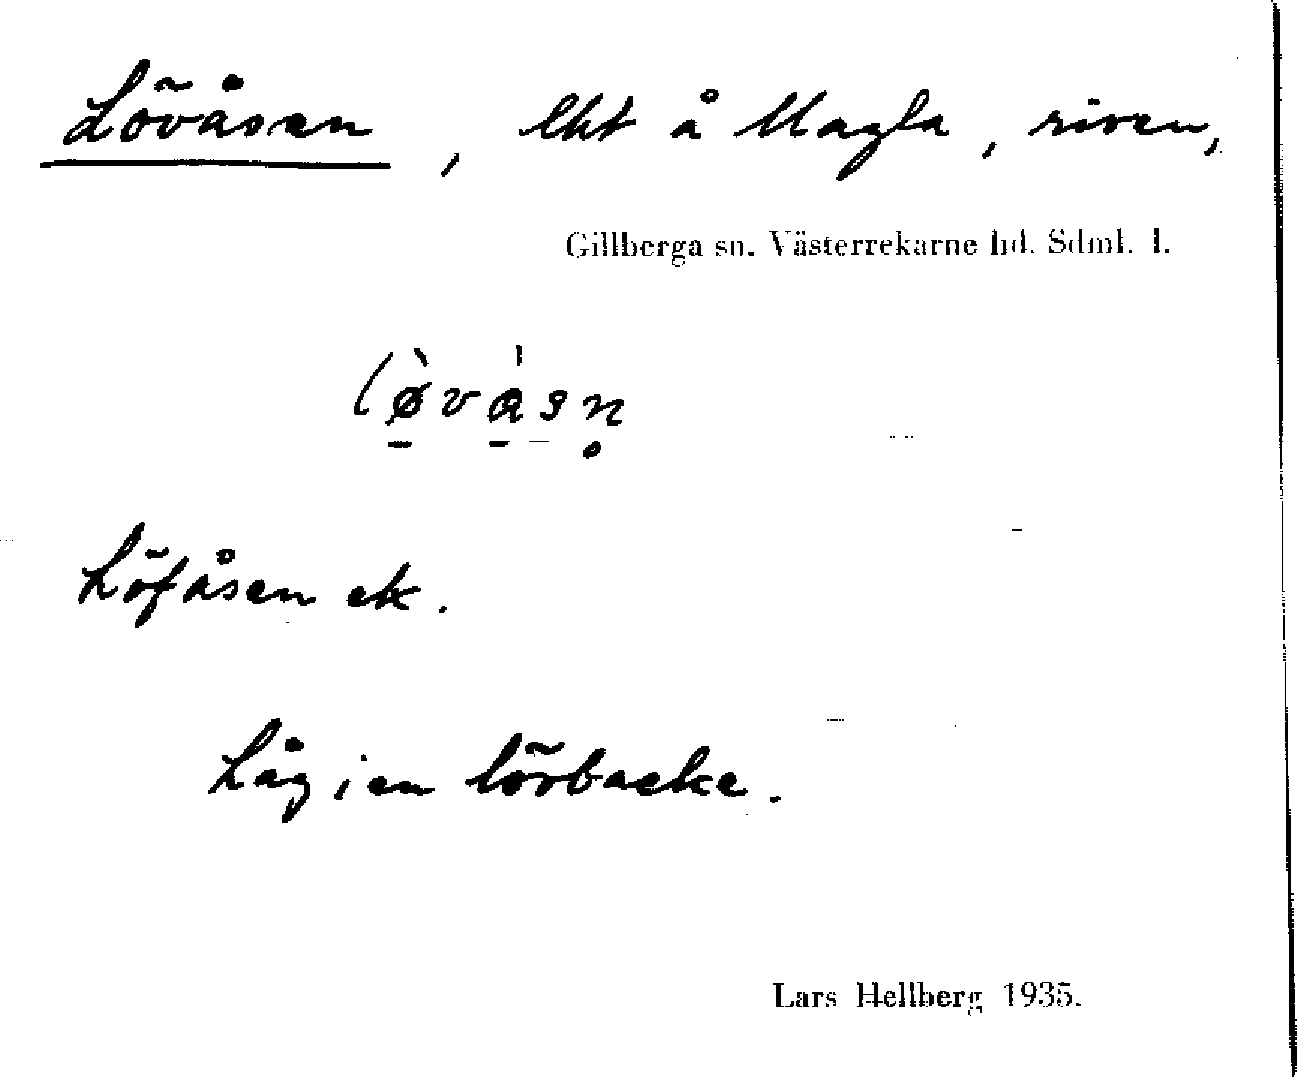 Lövåsen, lht å Magla, riven,
Gillberga sn. Västerrekarne hd. Sdml. l.
lø̀vás̥n̥
Löfåsen ek.
Låg i en lövbacke.
Lars Hellberg 1935.